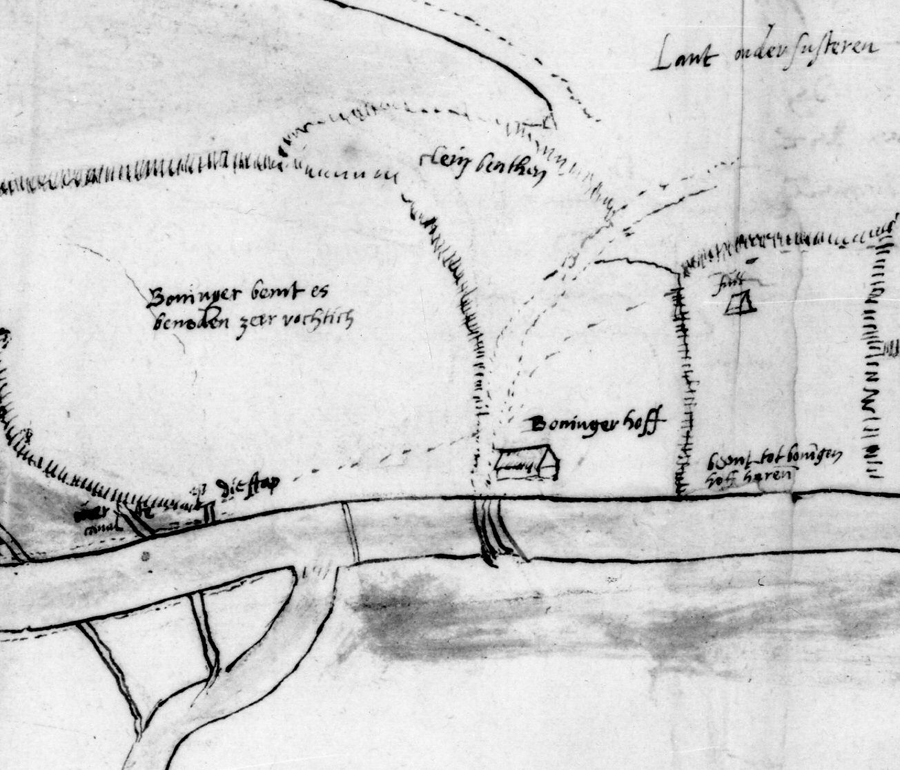 Lant onder susteren
cleijn benthen
Boninger bemt es
beneden zeer vochtich
Boninger hoff
bemt tot bonigen
hoff haren
die stap
canal